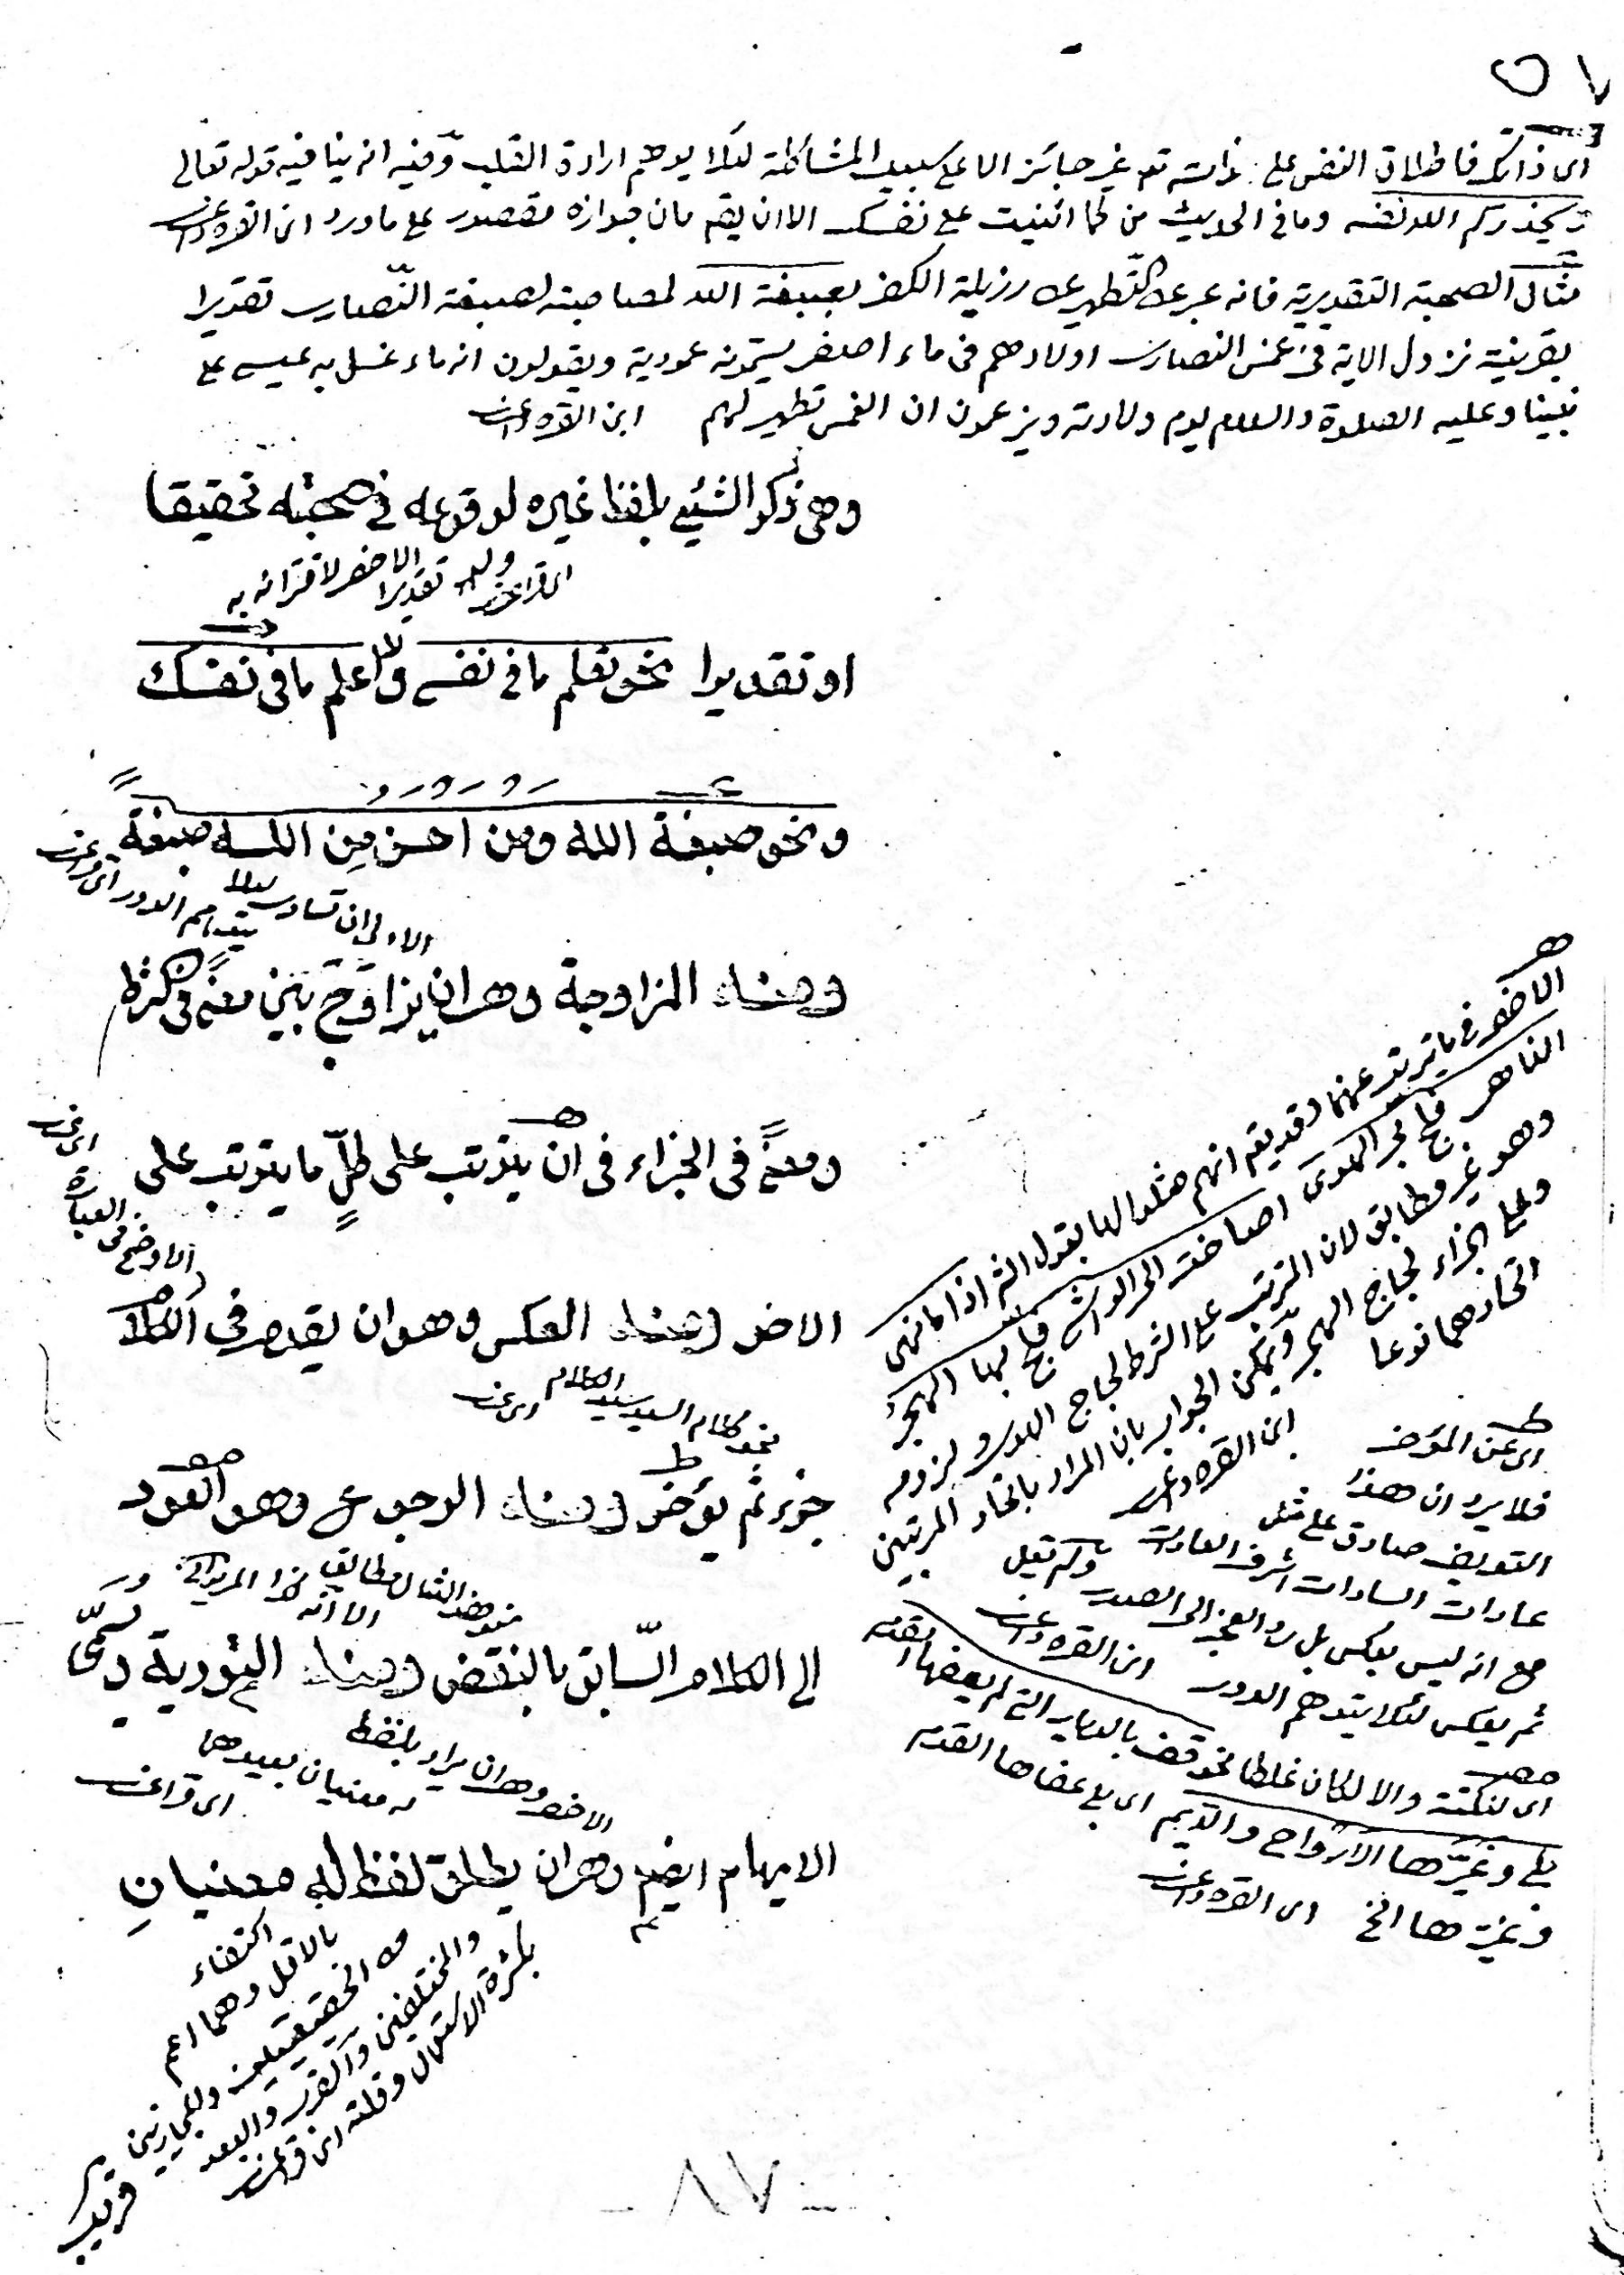 ٥٧
اى ذاتك فاطلاق النفس على ذاته تعم غير جائز الا على سبيل المشاكلة لئلا يوهم ارادة القلب وفيه انه ينافيه قوله تعالى
يحذركم الله نفسه وما فى الحديث من كما اثنيت على نفسك الا ان يقم بان جوازه مقصور على ما ورد ابن القره داغى
مثال الصحبة التقديرية فانه عبر عن التطهير عن رزيلة الكفر بصبغة الله لمصاحبته لصبغة النصارى تقديرا
بقرينة نزول الاية فى غمس النصارى اولادهم فى ماء اصفر يسمونه عمودية ويقولون انه ماء غسل به عيسى على
نبينا وعليه الصلوة والسلام يوم ولادته ويزعمون ان الغمس تطهير لهم ابن القره داغى
وهى ذكر الشيئ بلفظ غيره لوقوعه فى صحبته تحقيقا
ولو تقديرا الاخصر لاقترانه به
او تقديرا نحو تعلم ما فى نفسى ولا اعلم ما فى نفسك
ونحو صبغة الله ومن احسن من الله صبغة
الاولى ان تساوى لئلا يتوهم الدور
ومنه المزاوجة وهو ان يزاوج بين معنى فى شرط
ومعنى فى الجزاء فى ان يترتب على كلّ ما يترتب على
الاوضح فى العبارة
الاخر ومنه العكس وهو ان يقدم فى الكلام
نحو كلام السيد سيد الكلام
جزء ثم يؤخر ومنه الرجوع وهو العود
الى الكلام السّابق بالنقض ومنه التورية وتسمّى
الاخصر وهو ان يراد بلفظ له معنيان بعيدهما
الايهام ايضم وهو ان يطلق لفظ له معنيان
اكتفاء
بالاقل وهما اعم
من الحقيقيين والمجازيين
والمختلفين والقرب والبعد
بكثرة الاستعمال وقلته
قريب
الاخصر فى ما يترتب عنهما وقد يقم انهم مثلوا لها بقول الشاعر اذا ما نهى
الناهى فلج بى الهوى اصاخت الى الواشى فلج بها الهجر
وهو غير مطابق لان المترتب على الشرط لجاج الهوى
وعلى الجزاء لجاج الهجر ويمكن الجواب بان المراد باتحاد المرتبين
اتحادهما نوعا ابن القره داغى
اى عن المؤخر
فلا يرد ان هذا
التعريف صادق على مثل
عادات السادات اشرف العادات
مع انه ليس بعكس بل رد العجز الى الصدر ولم يقل
ثم يعكس لئلا يتوهم الدور ابن القره داغى
اى لنكتة والا لكان غلطا نحو قف بالديار التى لم يعفها القدم
بلى وغيّرها الارواح والديم اى بلى عفاها القدم
وغيّرها الخ ابن القره داغى
- ٨٧ -